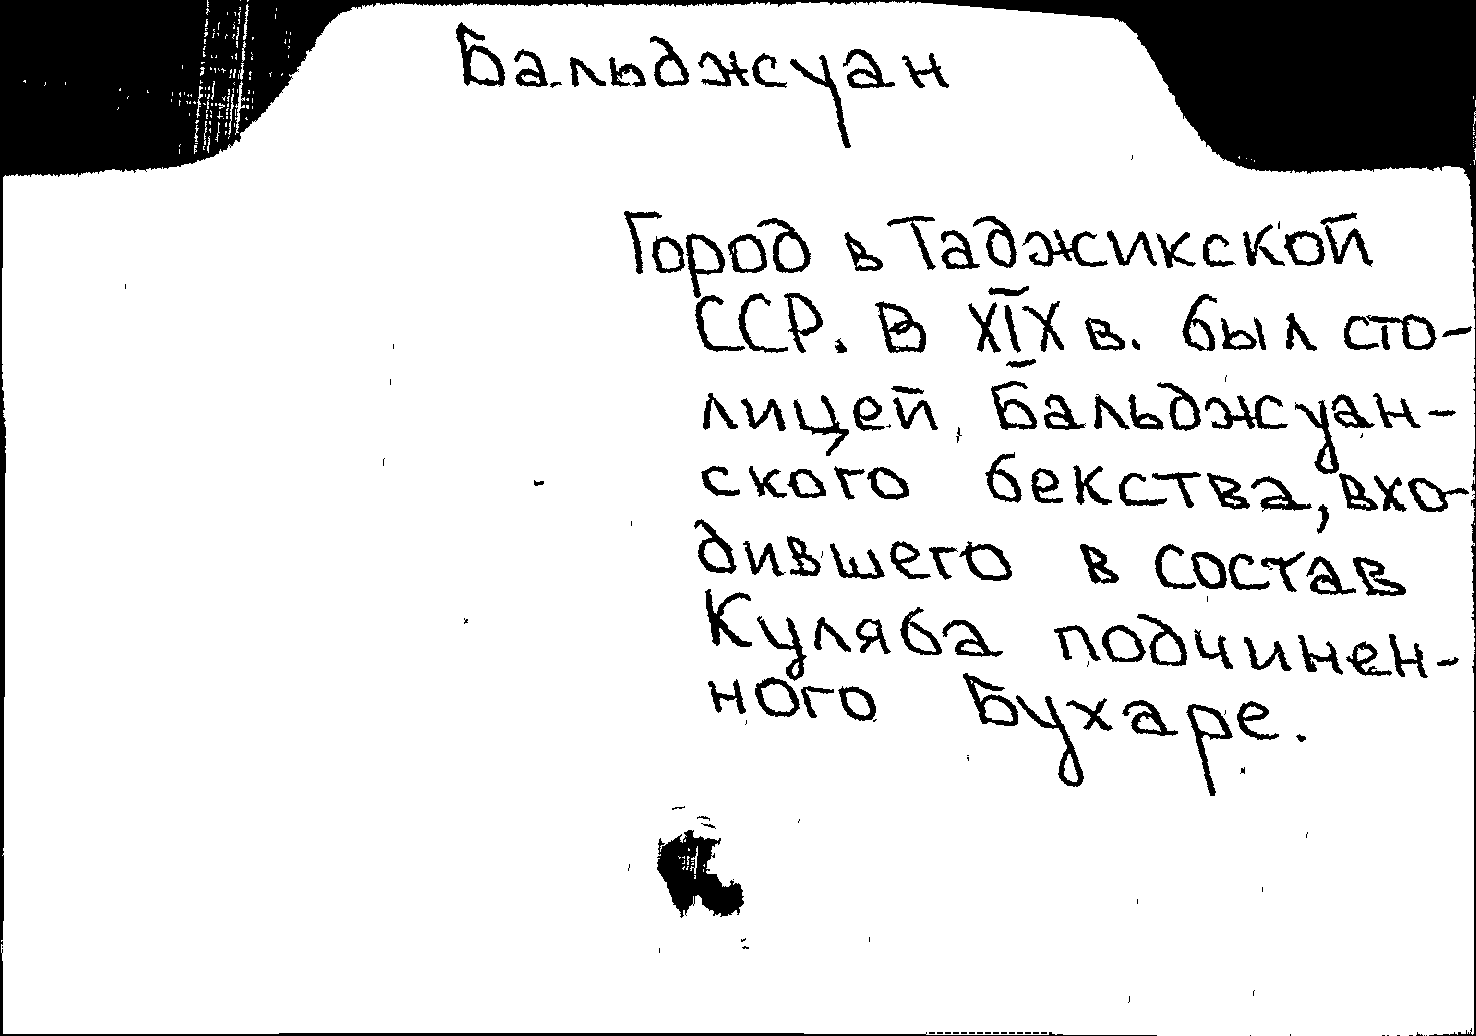 Бальджуан
Город в Таджикской
ССР. В XIX в. был сто-
лицей Бальджуан-
ского бекства, вхо-
дившего в состав
Куляба подчинен-
ного Бухаре.